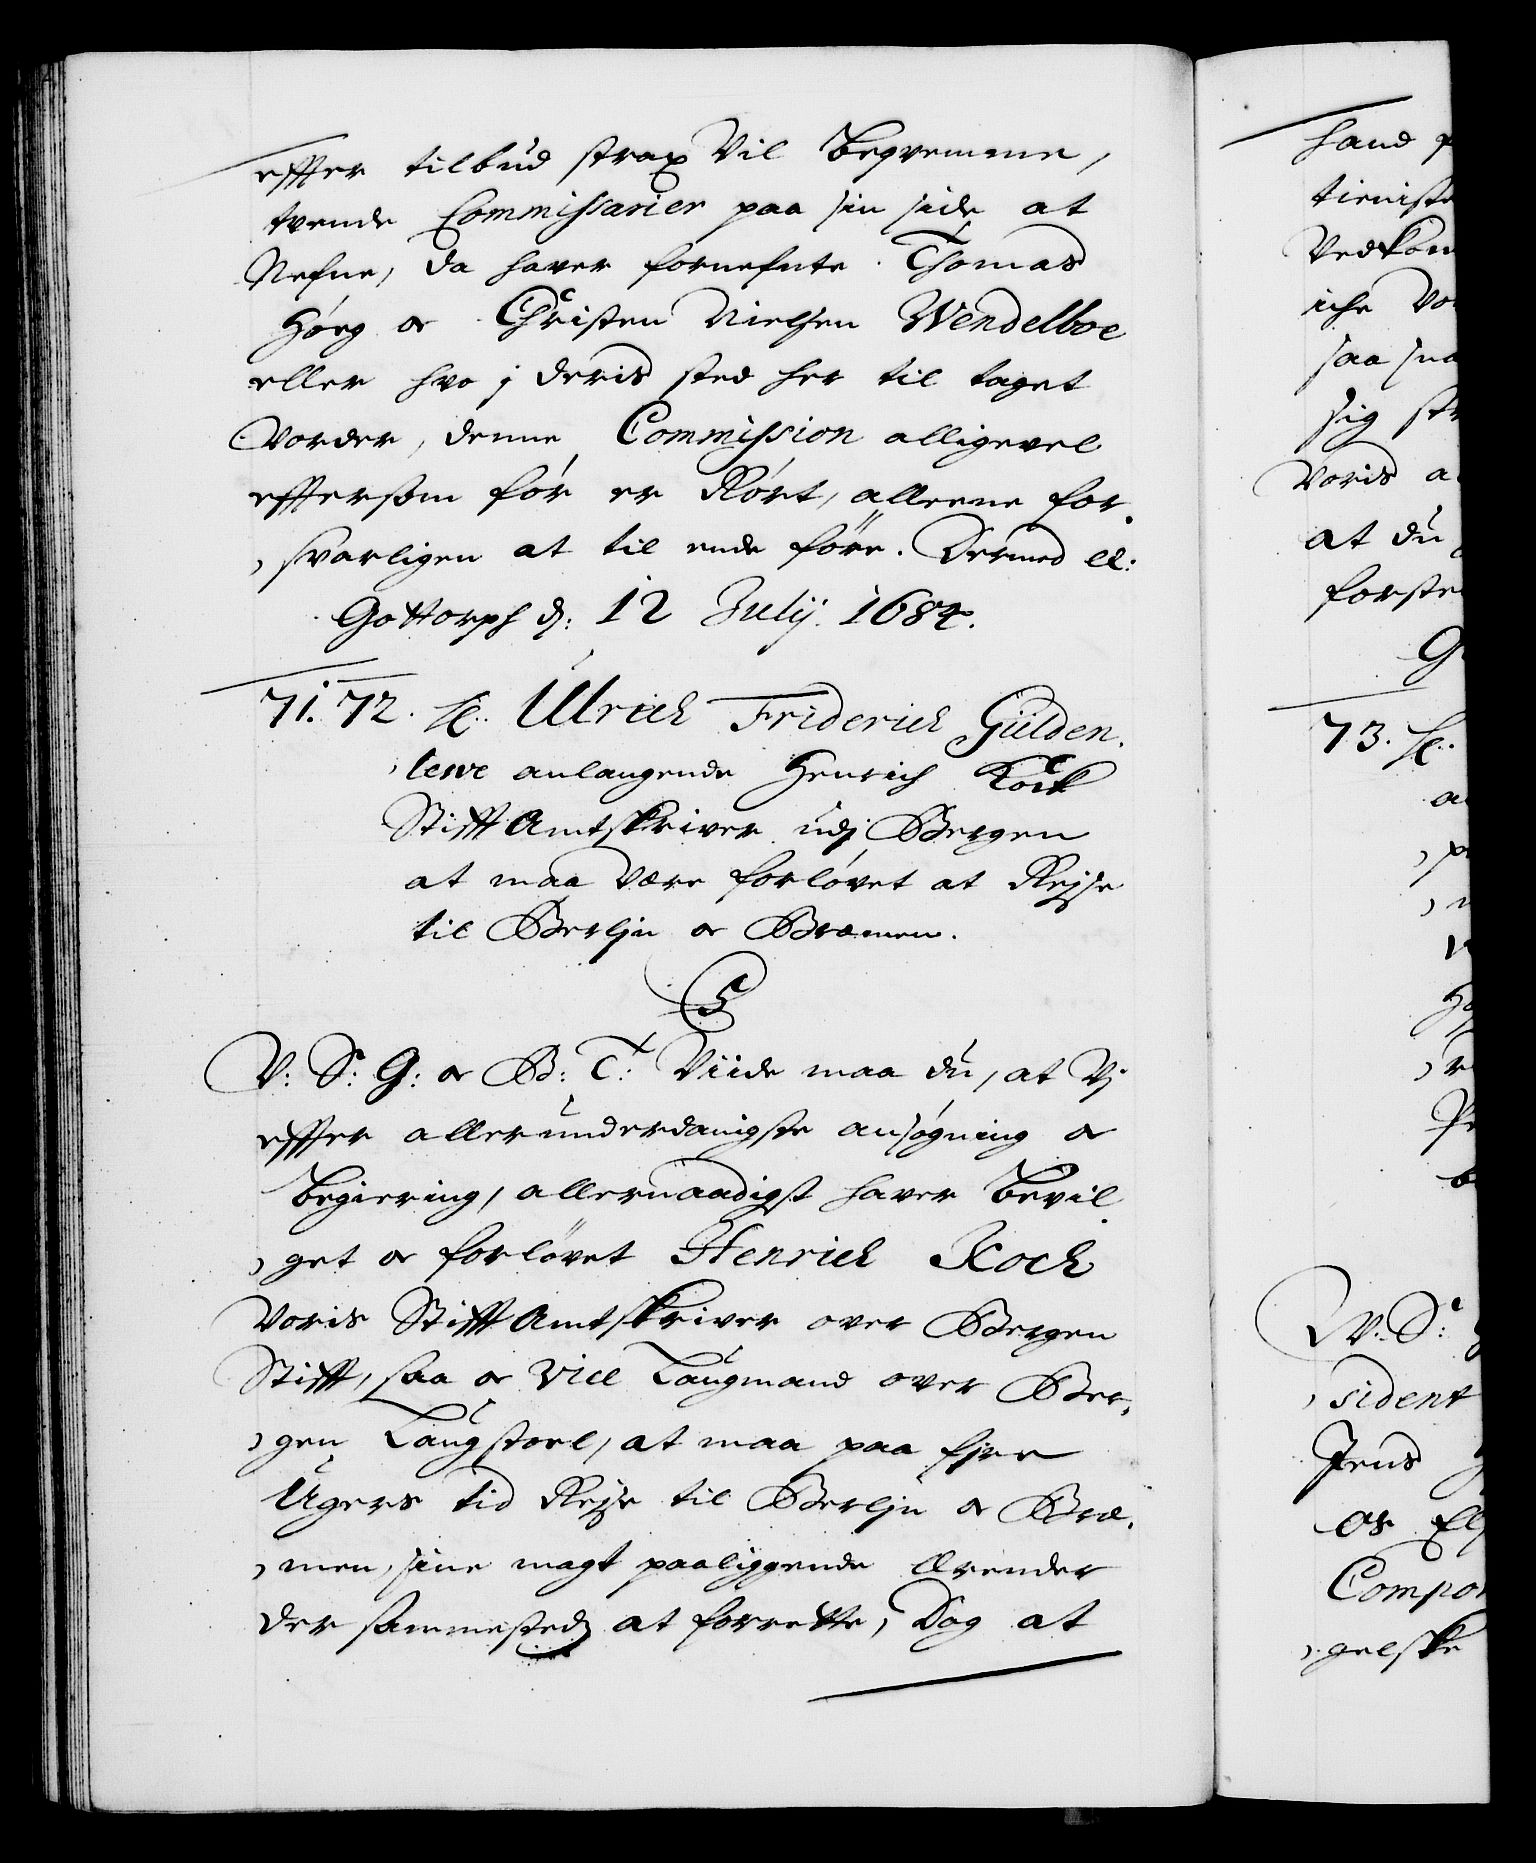 effter tilbud strax Vil Beqvemme,
tvende Commissarier paa sin side at
Nefne, da haver fornefnte Thomas
Høeg oc Christen Nielsen Wendelboe
eller hvo j deris sted her til taget
Vorder, denne Commission alligevel
effersom før er Rørt, alleene for-
svarligen at til ende føre. Dermed etc:
Gottorph d: 12 Julij. 1684.
71. 72. Ulrich Friderich Gülden-
lewe anlangende Henrich Kock
StifftAmtskriver udj Bergen
at maa være forløvet at Rejse
til Berljn oc Bremen.
C5
V: S: G: oc B: T: Viide maa du, at Vj
effter allerunderdanigste ansøgning oc
Begiering, allernaadigst haver Bevil-
get oc forløvet Henrich Koch
Voris StifftAmtskriver over Bergen
Stifft, saa oc Vice Laugmand over Ber-
gen Laugstoel, at maa paa fire
Ugers tid Rejse til Berljn oc Bre-
men, sine magt paaliggende Ærender
der sammesteds at forrette, Dog at
hand
tieniste
Vedkom
iche Vo
saa sna
sig str
Voris a
at du
forste
G
73.
W: S:
sident
Jens
os El
Compo
gelske